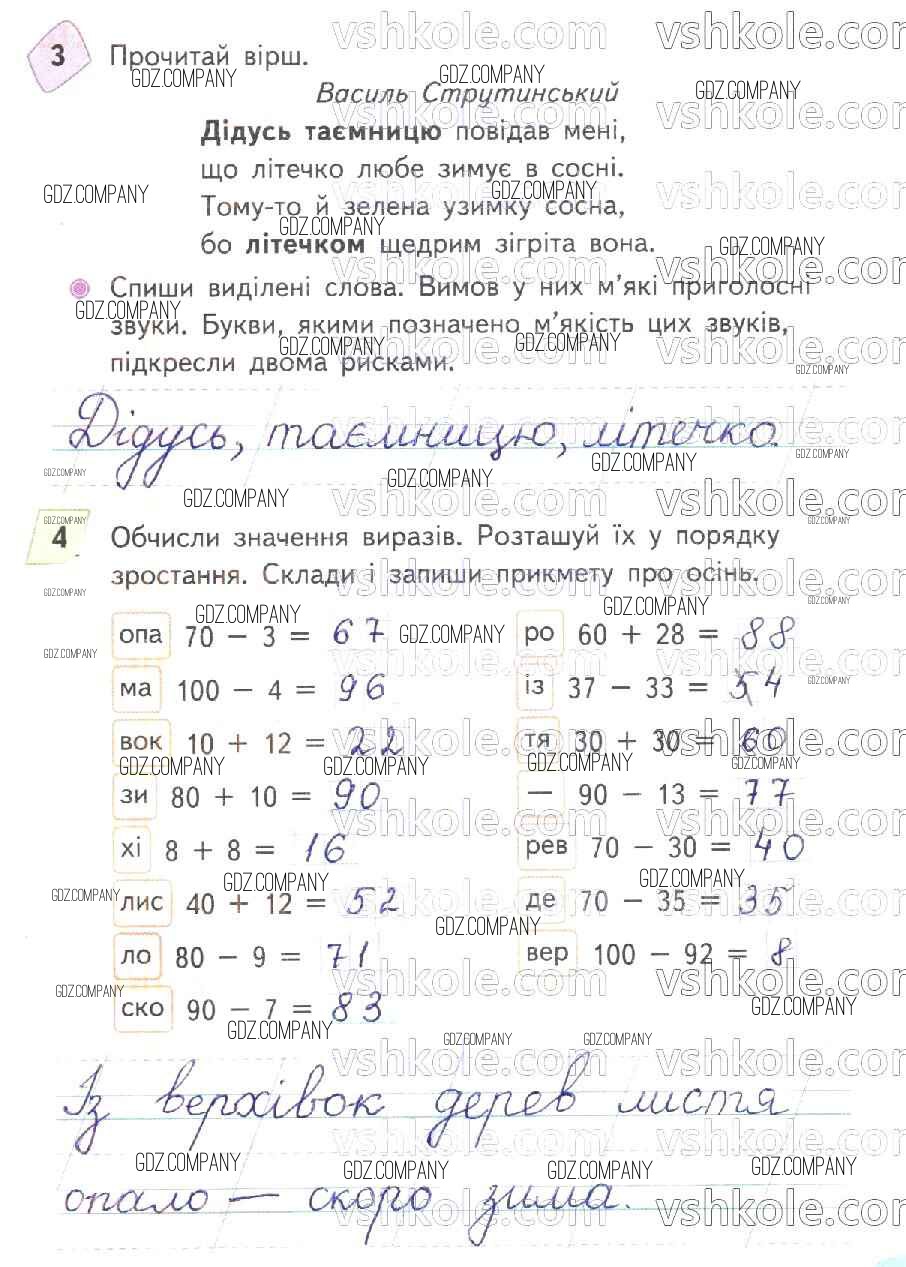 3 Прочитай вірш.
Василь Струтинський
Дідусь таємницю повідав мені,
що літечко любе зимує в сосні.
Тому-то й зелена узимку сосна,
бо літечком щедрим зігріта вона.
Спиши виділені слова. Вимов у них м'які приголосні
звуки. Букви, якими позначено м'якість цих звуків,
підкресли двома рисками.
Дідусь, таємницю, літечко.
4 Обчисли значення виразів. Розташуй їх у порядку
зростання. Склади і запиши прикмету про осінь.
опа 70 − 3 = 67
ро 60 + 28 = 88
ма 100 − 4 = 96
із 37 − 33 = 54
вок 10 + 12 = 22
тя 30 + 30 = 60
зи 80 + 10 = 90
— 90 − 13 = 77
хі 8 + 8 = 16
рев 70 − 30 = 40
лис 40 + 12 = 52
де 70 − 35 = 35
ло 80 − 9 = 71
вер 100 − 92 = 8
ско 90 − 7 = 83
Із верхівок дерев листя
опало — скоро зима.
GDZ.COMPANY
vshkole.com